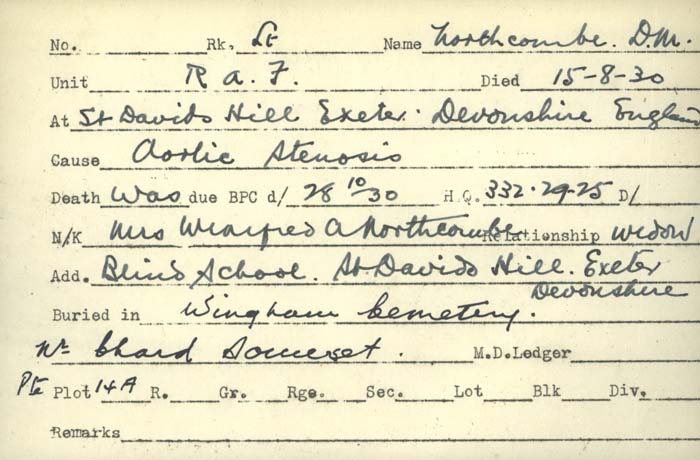 No. Rk. Lt Name Northcombe. D.M.
Unit R.A.F. Died 15-8-30
At St Davids Hill Exeter. Devonshire England
Cause Aortic Stenosis
Death was due BPC d/ 28 10/30 H.Q. 332-29-25 D/
N/K Mrs Winifred A Northcombe Relationship widow
Add. Blind School. St Davids Hill. Exeter
Devonshire
Buried in Wingham Cemetery.
Nr Chard Somerset. M.D.Ledger
Pte Plot 14A R. Gr. Rge. Sec. Lot Blk Div.
Remarks